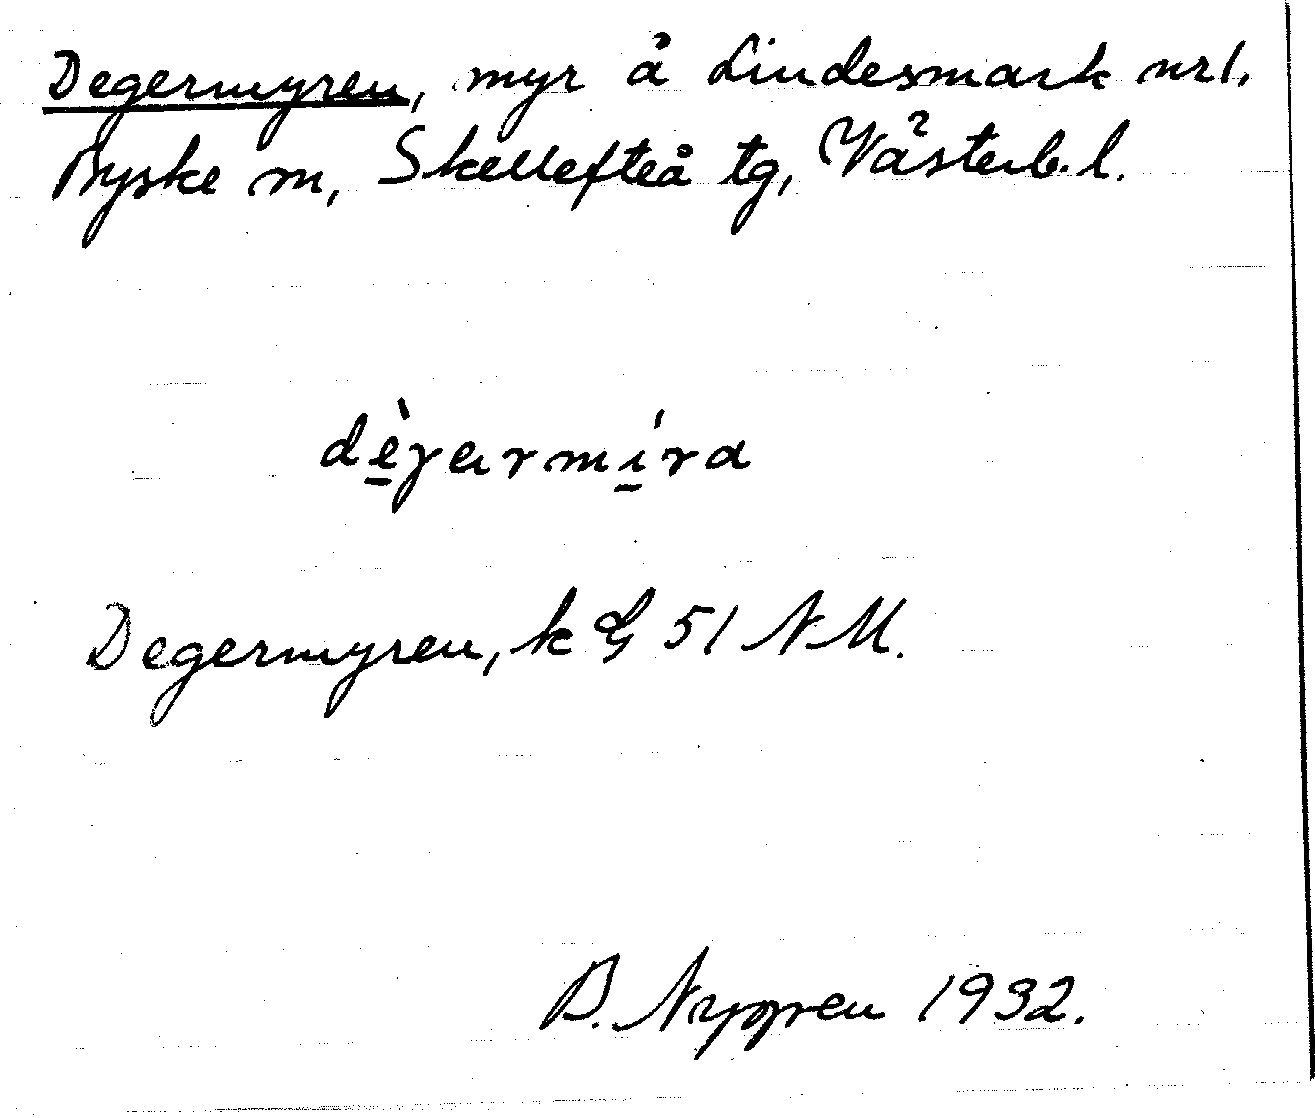 Degermyren, myr å Lindesmark nr 1.
Byske sn, Skellefteå tg, Västerb. l.
dèγarmíra
Degermyren, k G 51 N M.
B. Nygren 1932.